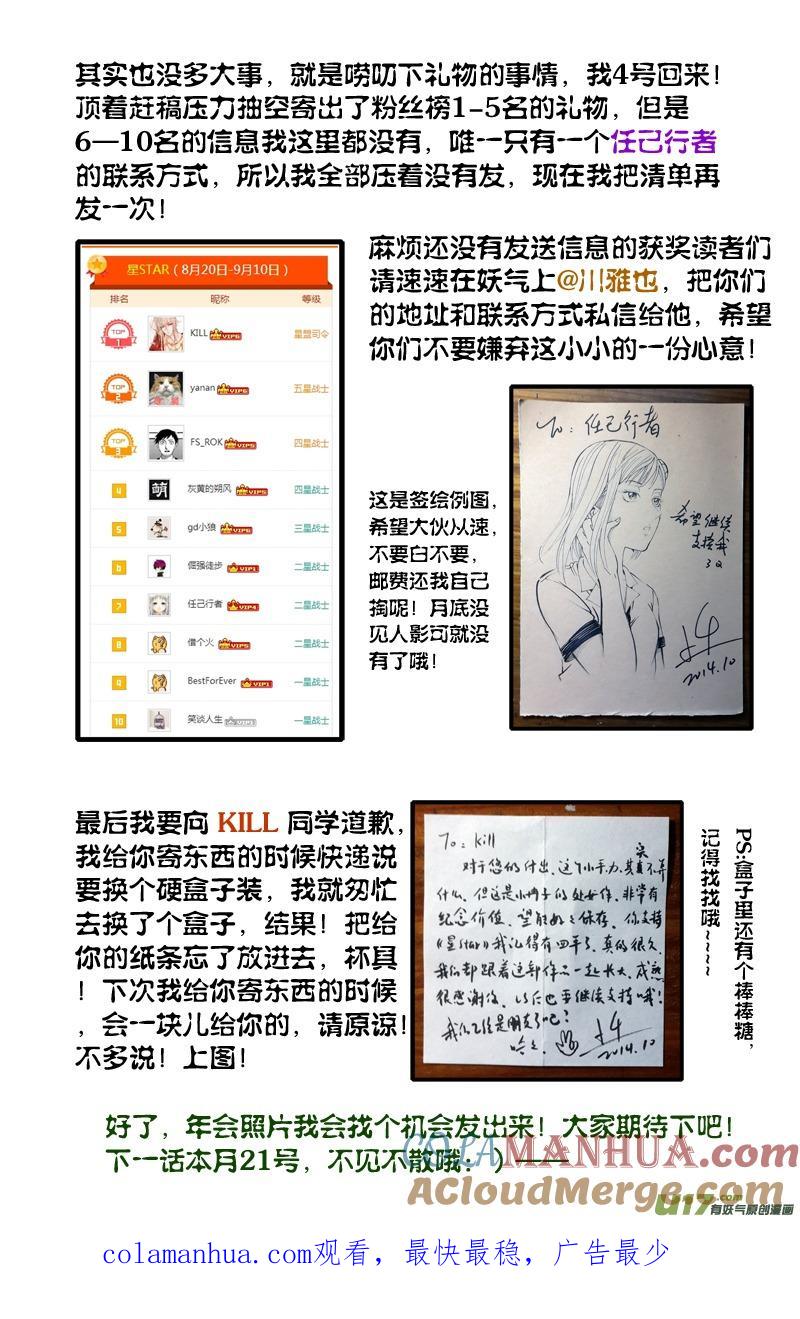 其实也没多大事，就是唠叨下礼物的事情，我4号回来！
顶着赶稿压力抽空寄出了粉丝榜1-5名的礼物，但是
6—10名的信息我这里都没有，唯一只有一个任己行者
的联系方式，所以我全部压着没有发，现在我把清单再
发一次！
星STAR（8月20日-9月10日）
排名 昵称 等级
TOP 1 KILL VIP6 星盟司令
TOP 2 yanan VIP6 五星战士
TOP 3 FS_ROK VIP6 四星战士
4 萌 灰黄的朔风 VIP5 四星战士
5 gd小狼 VIP6 三星战士
6 倔强徒步 VIP1 二星战士
7 任己行者 VIP4 二星战士
8 借个火 VIP5 二星战士
9 BestForEver VIP1 一星战士
10 笑谈人生 一星战士
麻烦还没有发送信息的获奖读者们
请速速在妖气上@川雅也，把你们
的地址和联系方式私信给他，希望
你们不要嫌弃这小小的一份心意！
这是签绘例图，
希望大伙从速，
不要白不要，
邮费还我自己
掏呢！月底没
见人影可就没
有了哦！
To：任己行者
希望继续
支持我
3Q
2014.10
最后我要向 KILL 同学道歉，
我给你寄东西的时候快递说
要换个硬盒子装，我就匆忙
去换了个盒子，结果！把给
你的纸条忘了放进去，杯具
！下次我给你寄东西的时候
，会一块儿给你的，请原谅！
不多说！上图！
To：kill
对于您的付出，这个小手办，其实真不算
什么，但这是小册子的处女作，非常有
纪念价值，望能好好保存，你支持
《星Star》我记得有四年了，真的很久，
我们都跟着这部作品一起长大，成熟
很感谢你，以后也要继续支持哦！
我们已经是朋友了吧？
哈哈
2014.10
PS:盒子里还有个棒棒糖，
记得找找哦~~~~
好了，年会照片我会找个机会发出来！大家期待下吧！
下一话本月21号，不见不散哦：）——
COLAMANHUA.com
AcloudMerge.com
U17.com
有妖气原创漫画
colamanhua.com观看，最快最稳，广告最少